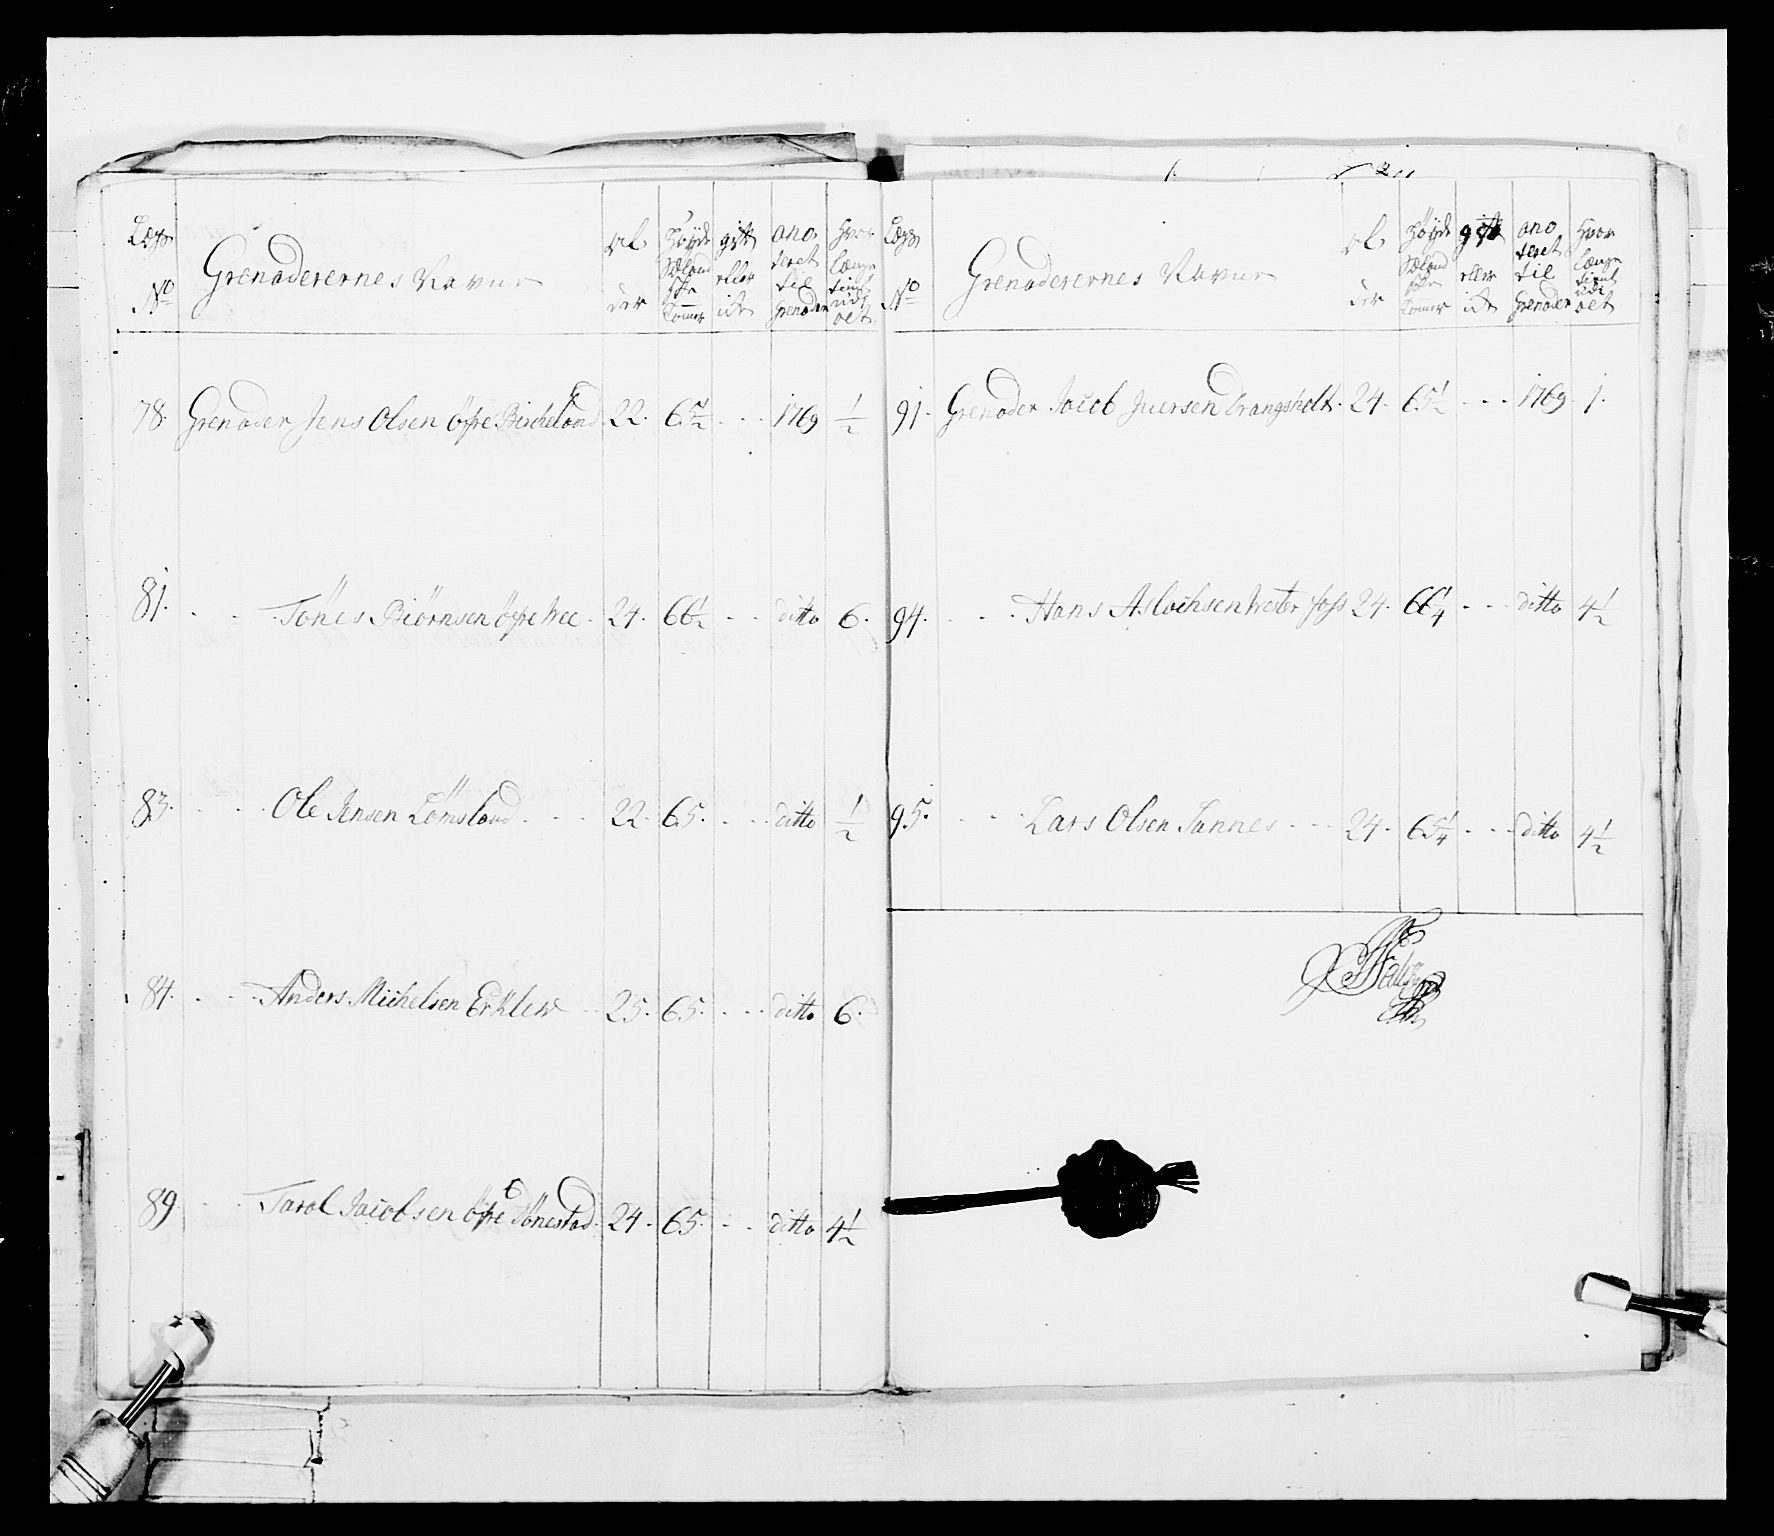 Lægs No
Grenaderernes Navne
Al der
Høyde Siælandske Tommer
gift eller ict
ano teret til Grenader
Hvor længe tient udi alt
78. Grenader Jens Olsen Øfre Bircheland 22. 65½ - - 1769 ½
81. - - Tönes Biörnsen öfre Wee - 24. 66½ - - ditto 6.
83. - - Ole Jensen Lömsland - - - 22. 65. - - ditto ½
84. - - Anders Michelsen Erklew - - 25. 65. - - ditto 6.
89. - - Tarol Jacobsen Øfre Tönestad 24. 65. - - ditto 4½
Lægs No
Grenaderernes Navne
Al der
Høyde Siælandske Tommer
gift eller ict
ano teret til Grenader
Hvor længe tient udi alt
91. Grenader Jacob Juersen Drangsholt. 24. 65½ - - - 1769. 1.
94. - - Hans Aslachsen Wester foss 24. 66¼ - - - ditto 4½
95. - - Lars Olsen Tannes - - - 24. 65¼ - - - ditto 4½